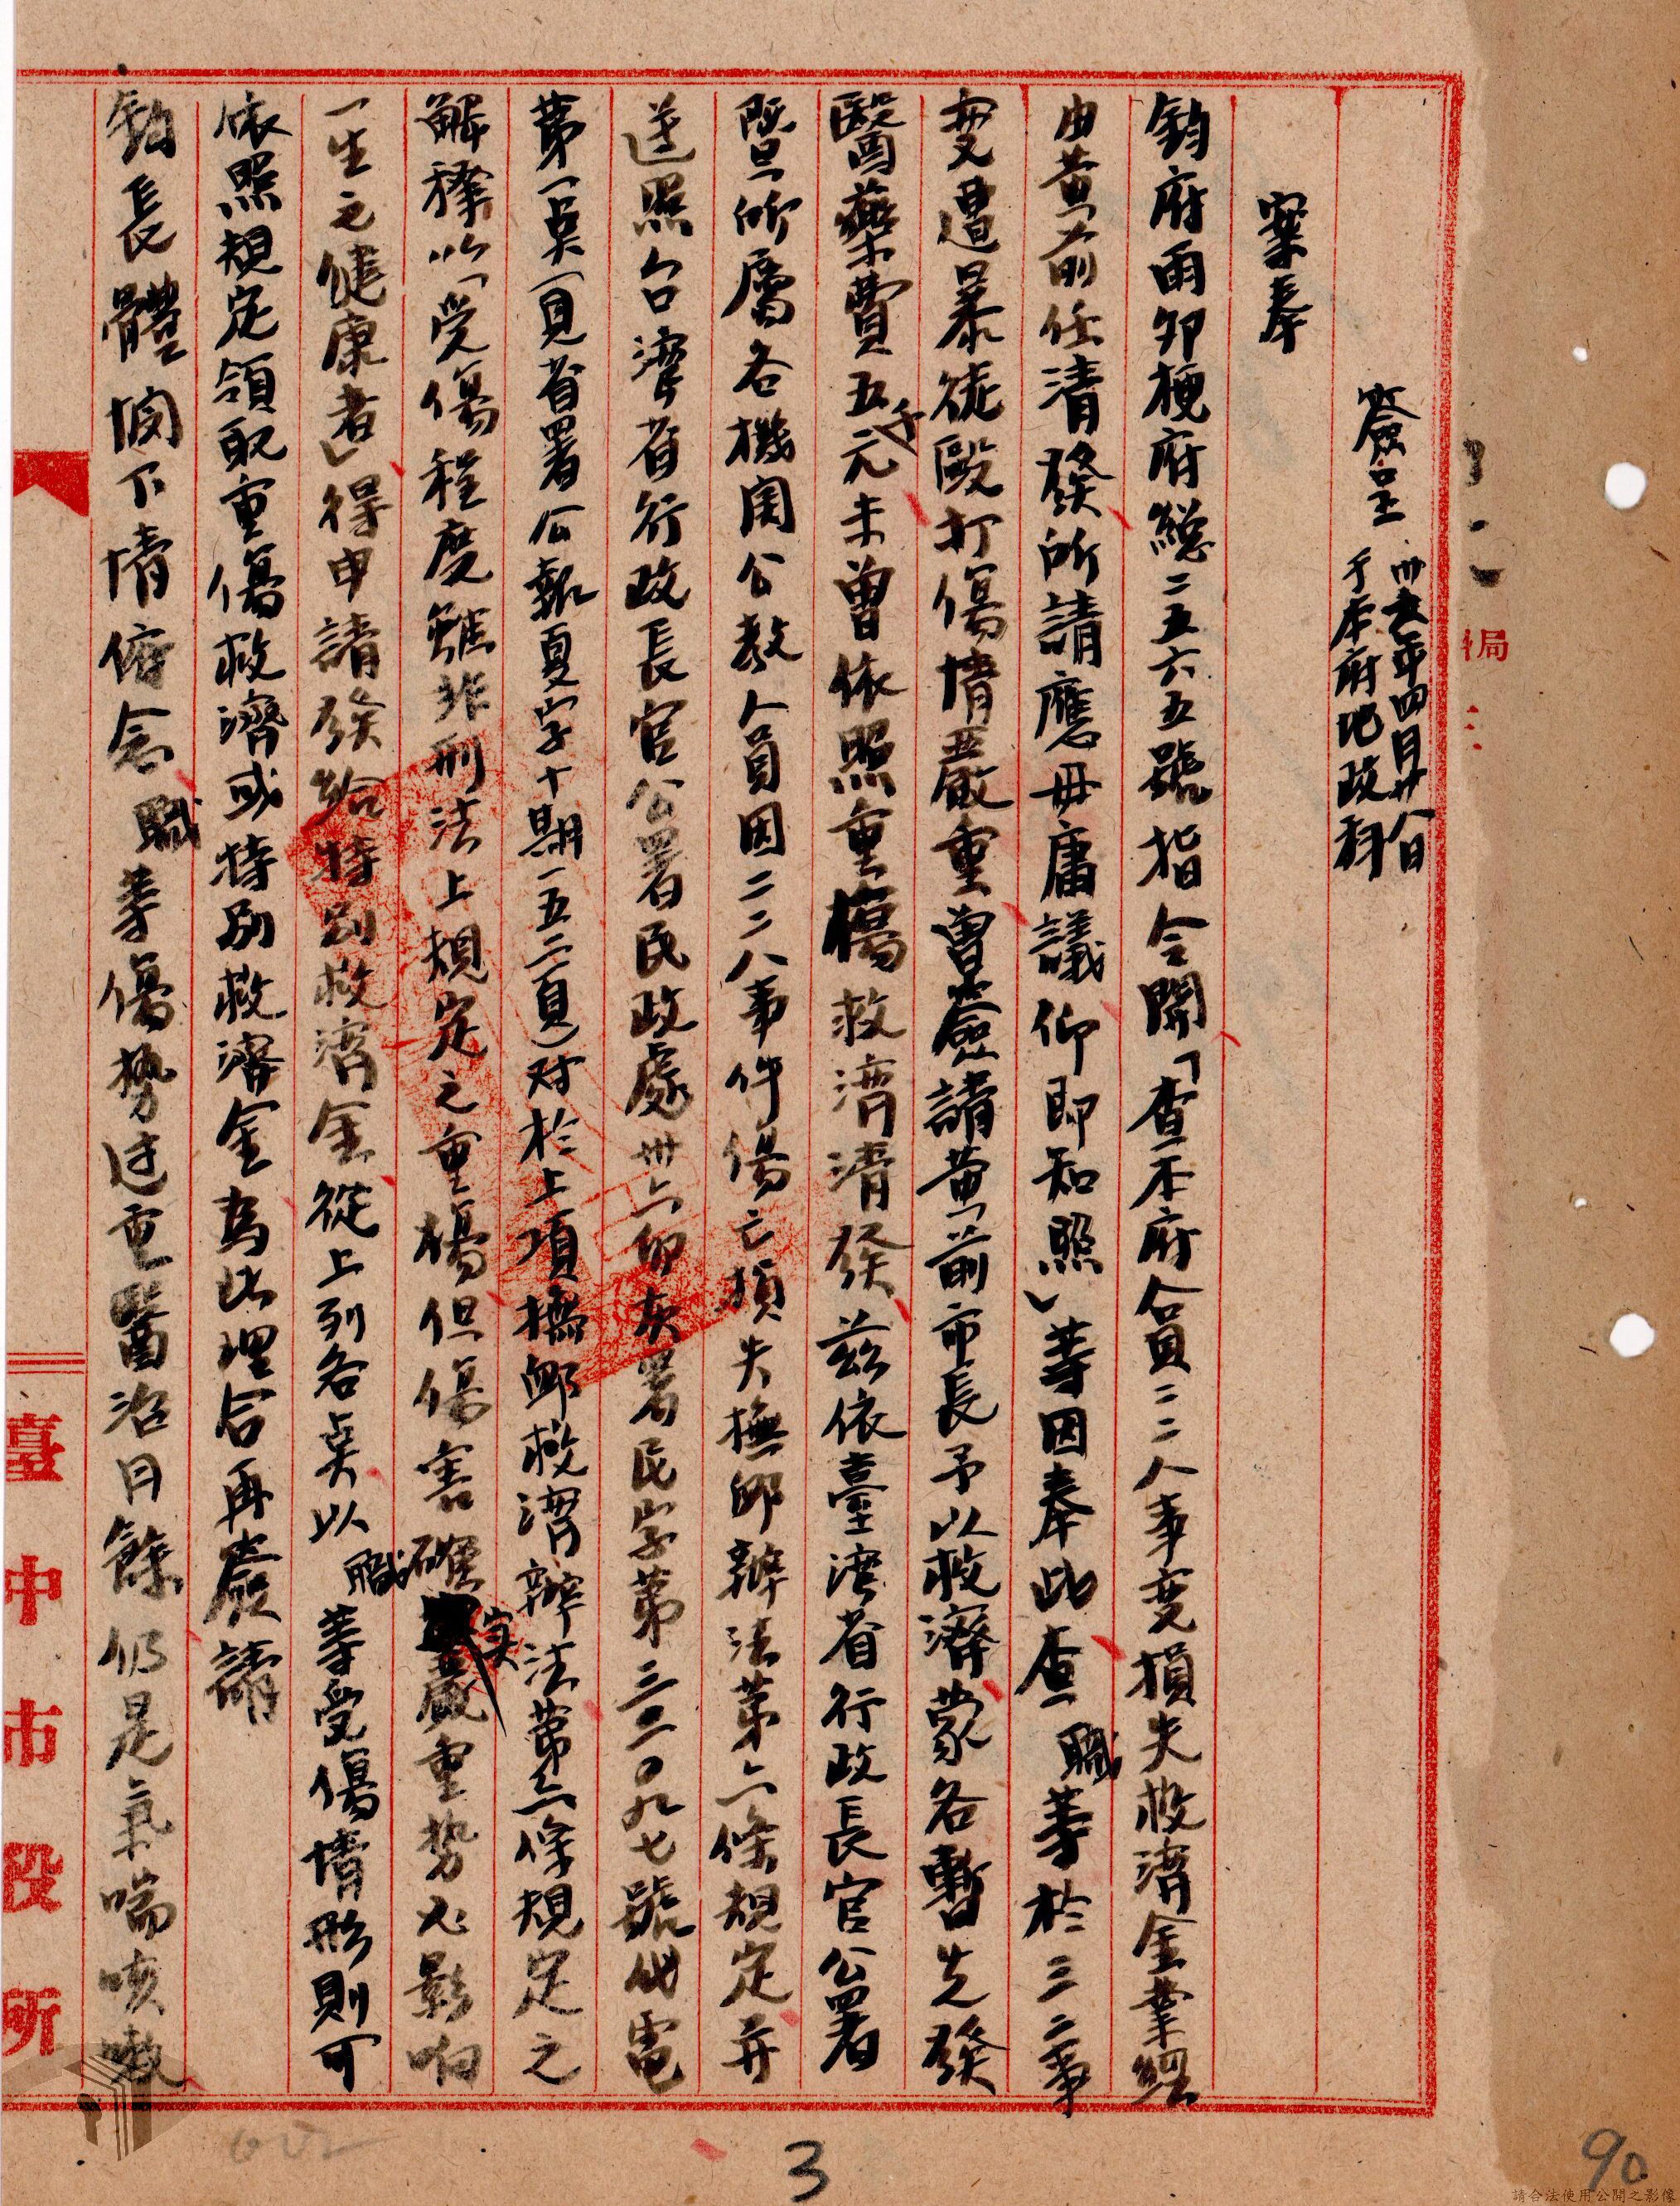 簽呈 卅六年四月廿八日
于本府地政科
案奉
鈞府雨卯梗府總二五六五號指令開「查本府合員三二人事変損失救濟金業經
由黃前任清發所請應毋庸議仰即知照」等因奉此查職等於三二事
变遭暴徒毆打傷情嚴重曾簽請黃前市長予以救濟蒙各暫先發
醫藥費五千元未曾依照重傷救濟清發茲依臺灣省行政長官公署
暨所屬各機関公教人員因二二八事件傷亡損失撫卹辦法第六條規定并
遵照台灣省行政長官公署民政處卅六卯灰署民字第三三〇九七號代電
第一点(見省署公報夏字十期一五二頁)对於上項撫卹救濟辦法第六條規定之
解釋以「受傷程度雖非刑法上規定之重傷但傷害確实嚴重勢必影响
一生之健康者」得申請發給特別救濟金從上列各点以職等受傷情形則可
依照規定領取重傷救濟或特別救濟金為此理合再嚴請
鈞長體憫下情俯念職等傷势过重醫治月餘仍是氣喘咳嗽
臺中市役所
局
3
90
請合法使用公開之影像